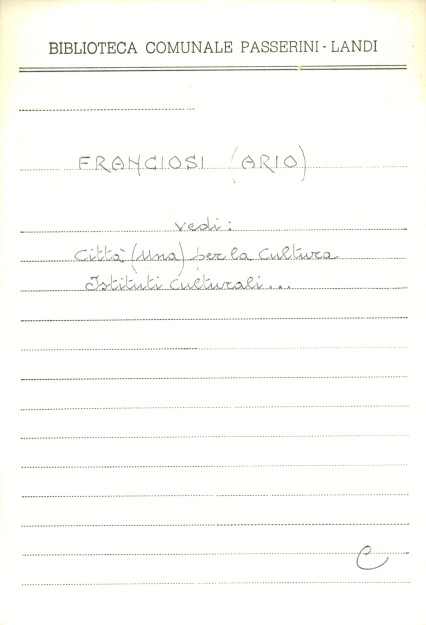 BIBLIOTECA COMUNALE PASSERINI - LANDI
FRANCIOSI (ARIO)
vedi:
Città (Una) per la Cultura
Istituti Culturali...
C